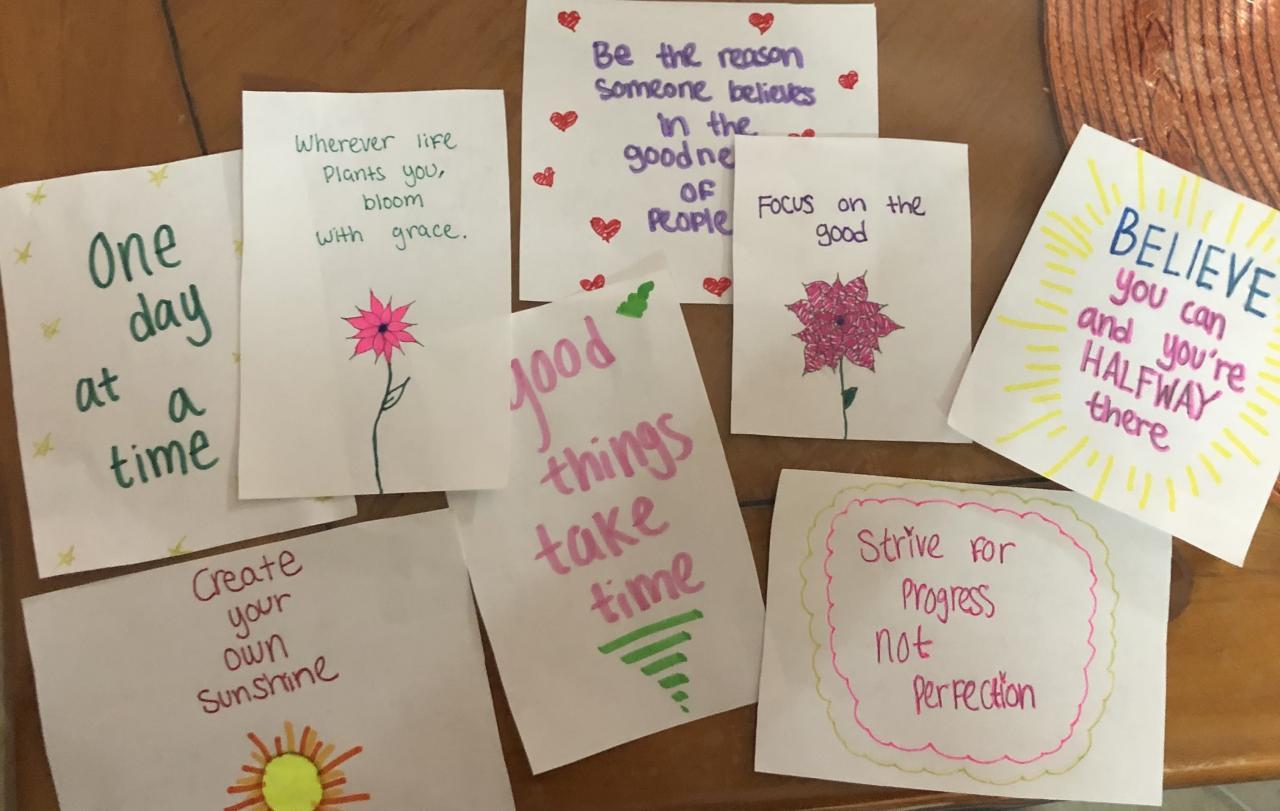 One
day
at a
time
Wherever life
Plants you,
bloom
with grace.
Be the reason
someone believes
in the
goodne
of
People
Focus on the
good
BELIEVE
you can
and you're
HALFWAY
there
good
things
take
time
Create
your
own
sunshine
Strive for
Progress
not
Perfection